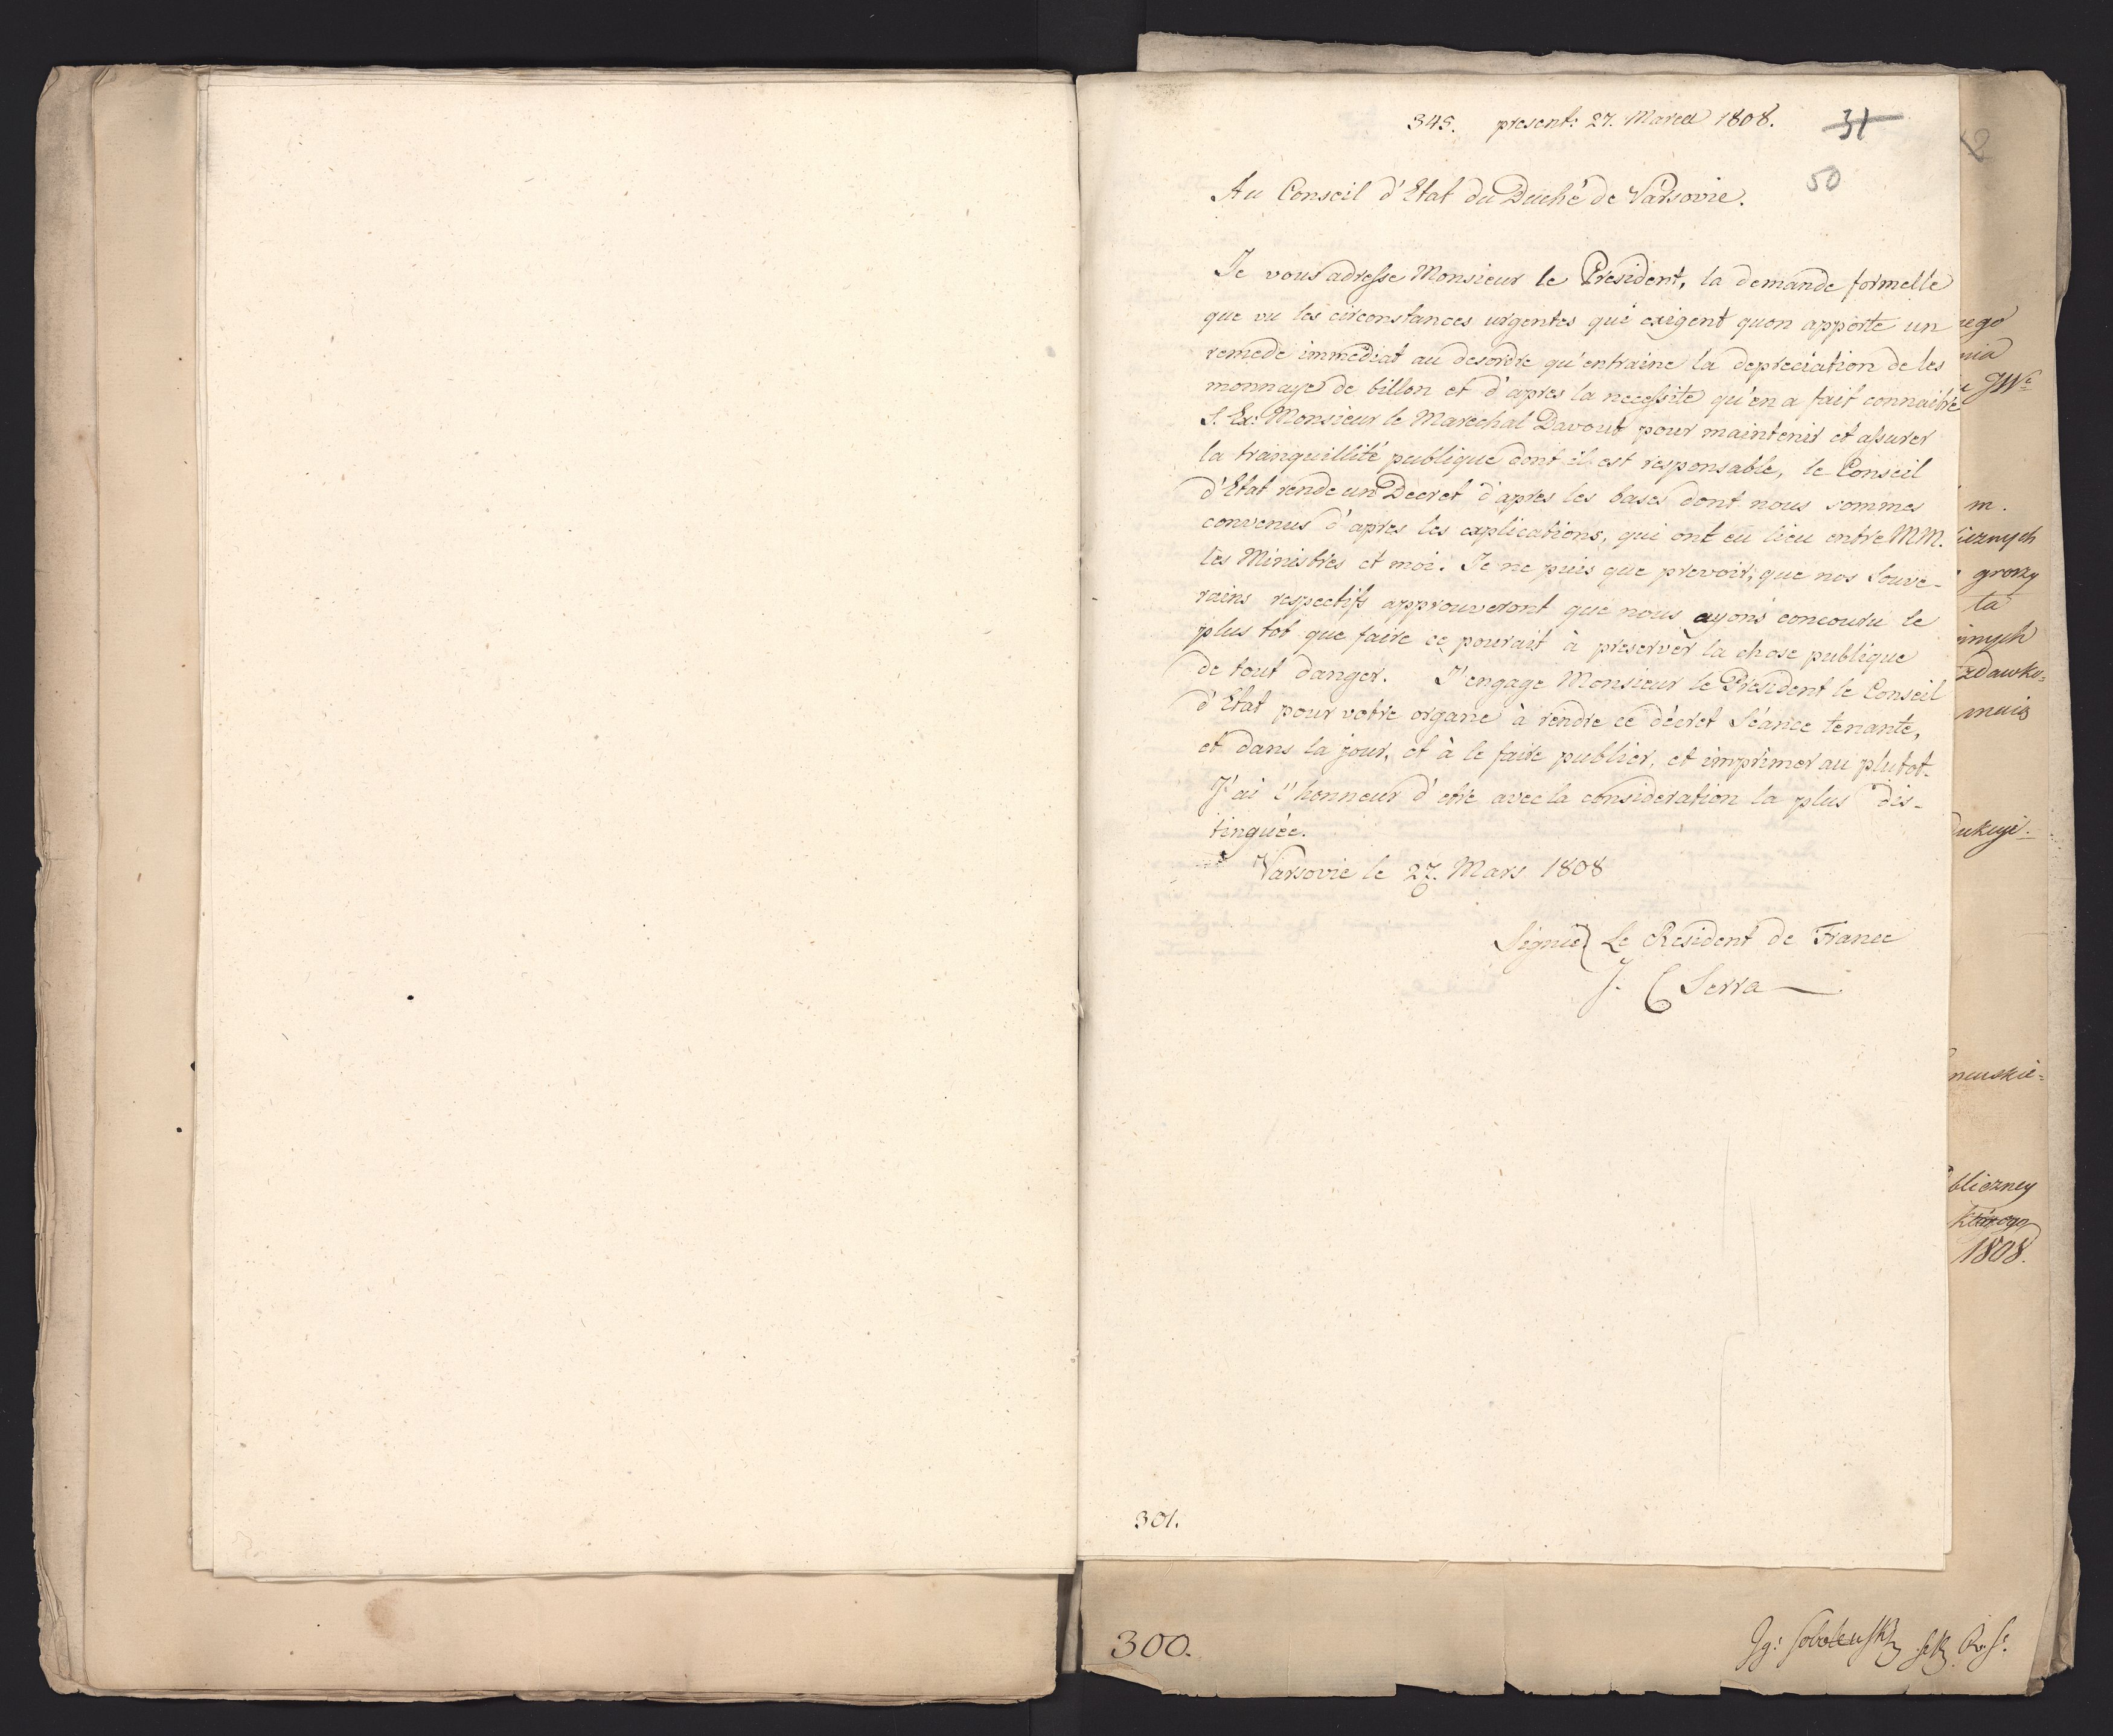 345. present: 27. Marca 1808.
31
50
Au Conseil d'Etat du Duché de Varsovie.
Je vous adresse Monsieur le President, la demande formelle
que vu les circonstances urgentes qui exigent quon apporte un
remede immediat au desordre qu'entraine la depreciation de les
monnaye de billon et d'apres la necessite qu'en a fait connaitre
S. Ex: Monsieur le Marechal Davout pour maintenir et assurer
la tranquillité publique dont il est responsable, le Conseil
d'Etat rende un Decret d'apres les bases dont nous sommes
convenus d'apres les explications, qui ont eu lieu entre MM.
les Ministres et moi. Je ne puis que prevoir, que nos Souve-
rains respectifs approuveront que nous ayons concouru le
plus tot que faire ce pourait à preserver la chose publique
de tout danger. J'engage Monsieur le President le Conseil
d'Etat pour votre organe à rendre ce décret Séance tenante,
et dans la jour, et à le faire publier, et imprimer au plutot.
J'ai l'honneur d'etre avec la consideration la plus dis-
tinguée.
Varsovie le 27. Mars 1808
Signié Le Resident de France
J. C Serra
301.
2
nia
JW
m.
grozy
ta
zdawko=
muis
dukcyi.
ncuskie=
bliczney
1808.
300.
Ig: Sobolewski